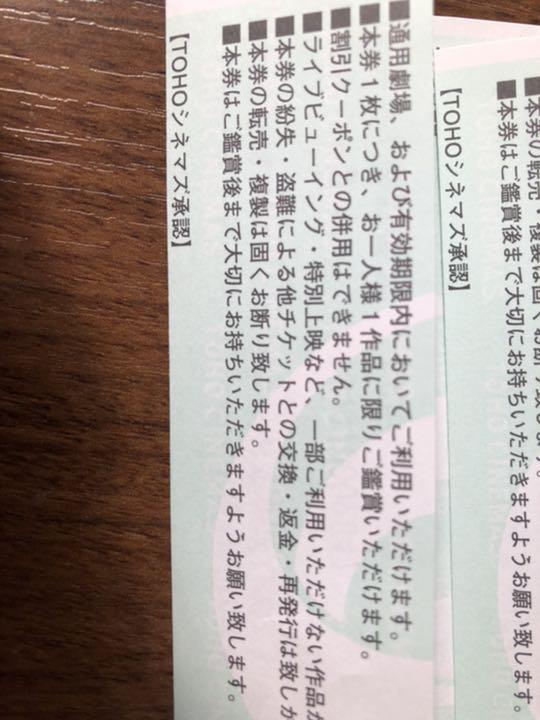 ■通用劇場、および有効期限内においてご利用いただけます。
■本券1枚につき、お一人様1作品に限りご鑑賞いただけます。
■割引クーポンとの併用はできません。
■ライブビューイング・特別上映など、一部ご利用いただけない作品が
■本券の紛失・盗難による他チケットとの交換・返金・再発行は致しか
■本券の転売・複製は固くお断り致します。
■本券はご鑑賞後まで大切にお持ちいただきますようお願い致します。
【TOHOシネマズ承認】
■本券の転売・複製は固くお断り致します。
■本券はご鑑賞後まで大切にお持ちいただきますようお願い致します。
【TOHOシネマズ承認】